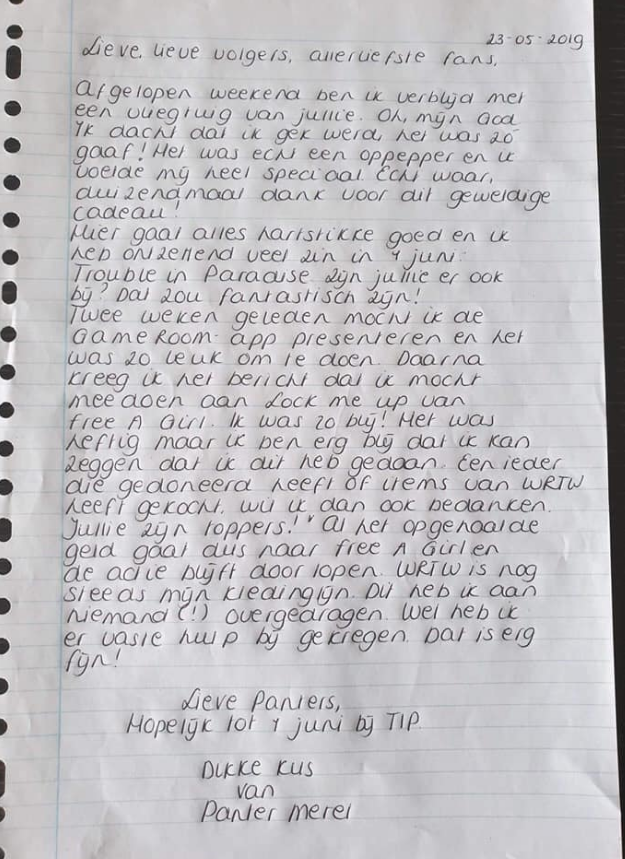 23-05-2019
Lieve, lieve volgers, allerliefste fans,
Afgelopen weekend ben ik verblijd met
een vliegtuig van jullie. Oh, mijn God
Ik dacht dat ik gek werd, het was zo
gaaf! Het was echt een oppepper en ik
voelde mij heel speciaal. Echt waar,
duizendmaal dank voor dit geweldige
cadeau!
Hier gaat alles hartstikke goed en ik
heb ontzettend veel zin in 1 juni:
Trouble in Paradise. Zijn jullie er ook
bij? Dat zou fantastisch zijn!
Twee weken geleden mocht ik de
GameRoom-app presenteren en het
was zo leuk om te doen. Daarna
kreeg ik het bericht dat ik mocht
meedoen aan Lock me up van
Free A Girl. Ik was zo blij! Het was
heftig maar ik ben erg blij dat ik kan
zeggen dat ik dit heb gedaan. Een ieder
die gedoneerd heeft of items van WRTW
heeft gekocht, wil ik dan ook bedanken.
Jullie zijn toppers! Al het opgehaalde
geld gaat dus naar Free A Girl en
de actie blijft doorlopen. WRTW is nog
steeds mijn kledinglijn. Dit heb ik aan
niemand (!) overgedragen. Wel heb ik
er vaste hulp bij gekregen. Dat is erg
fijn!
Lieve Panters,
Hopelijk tot 1 juni bij TIP.
Dikke kus
van
Panter Merel